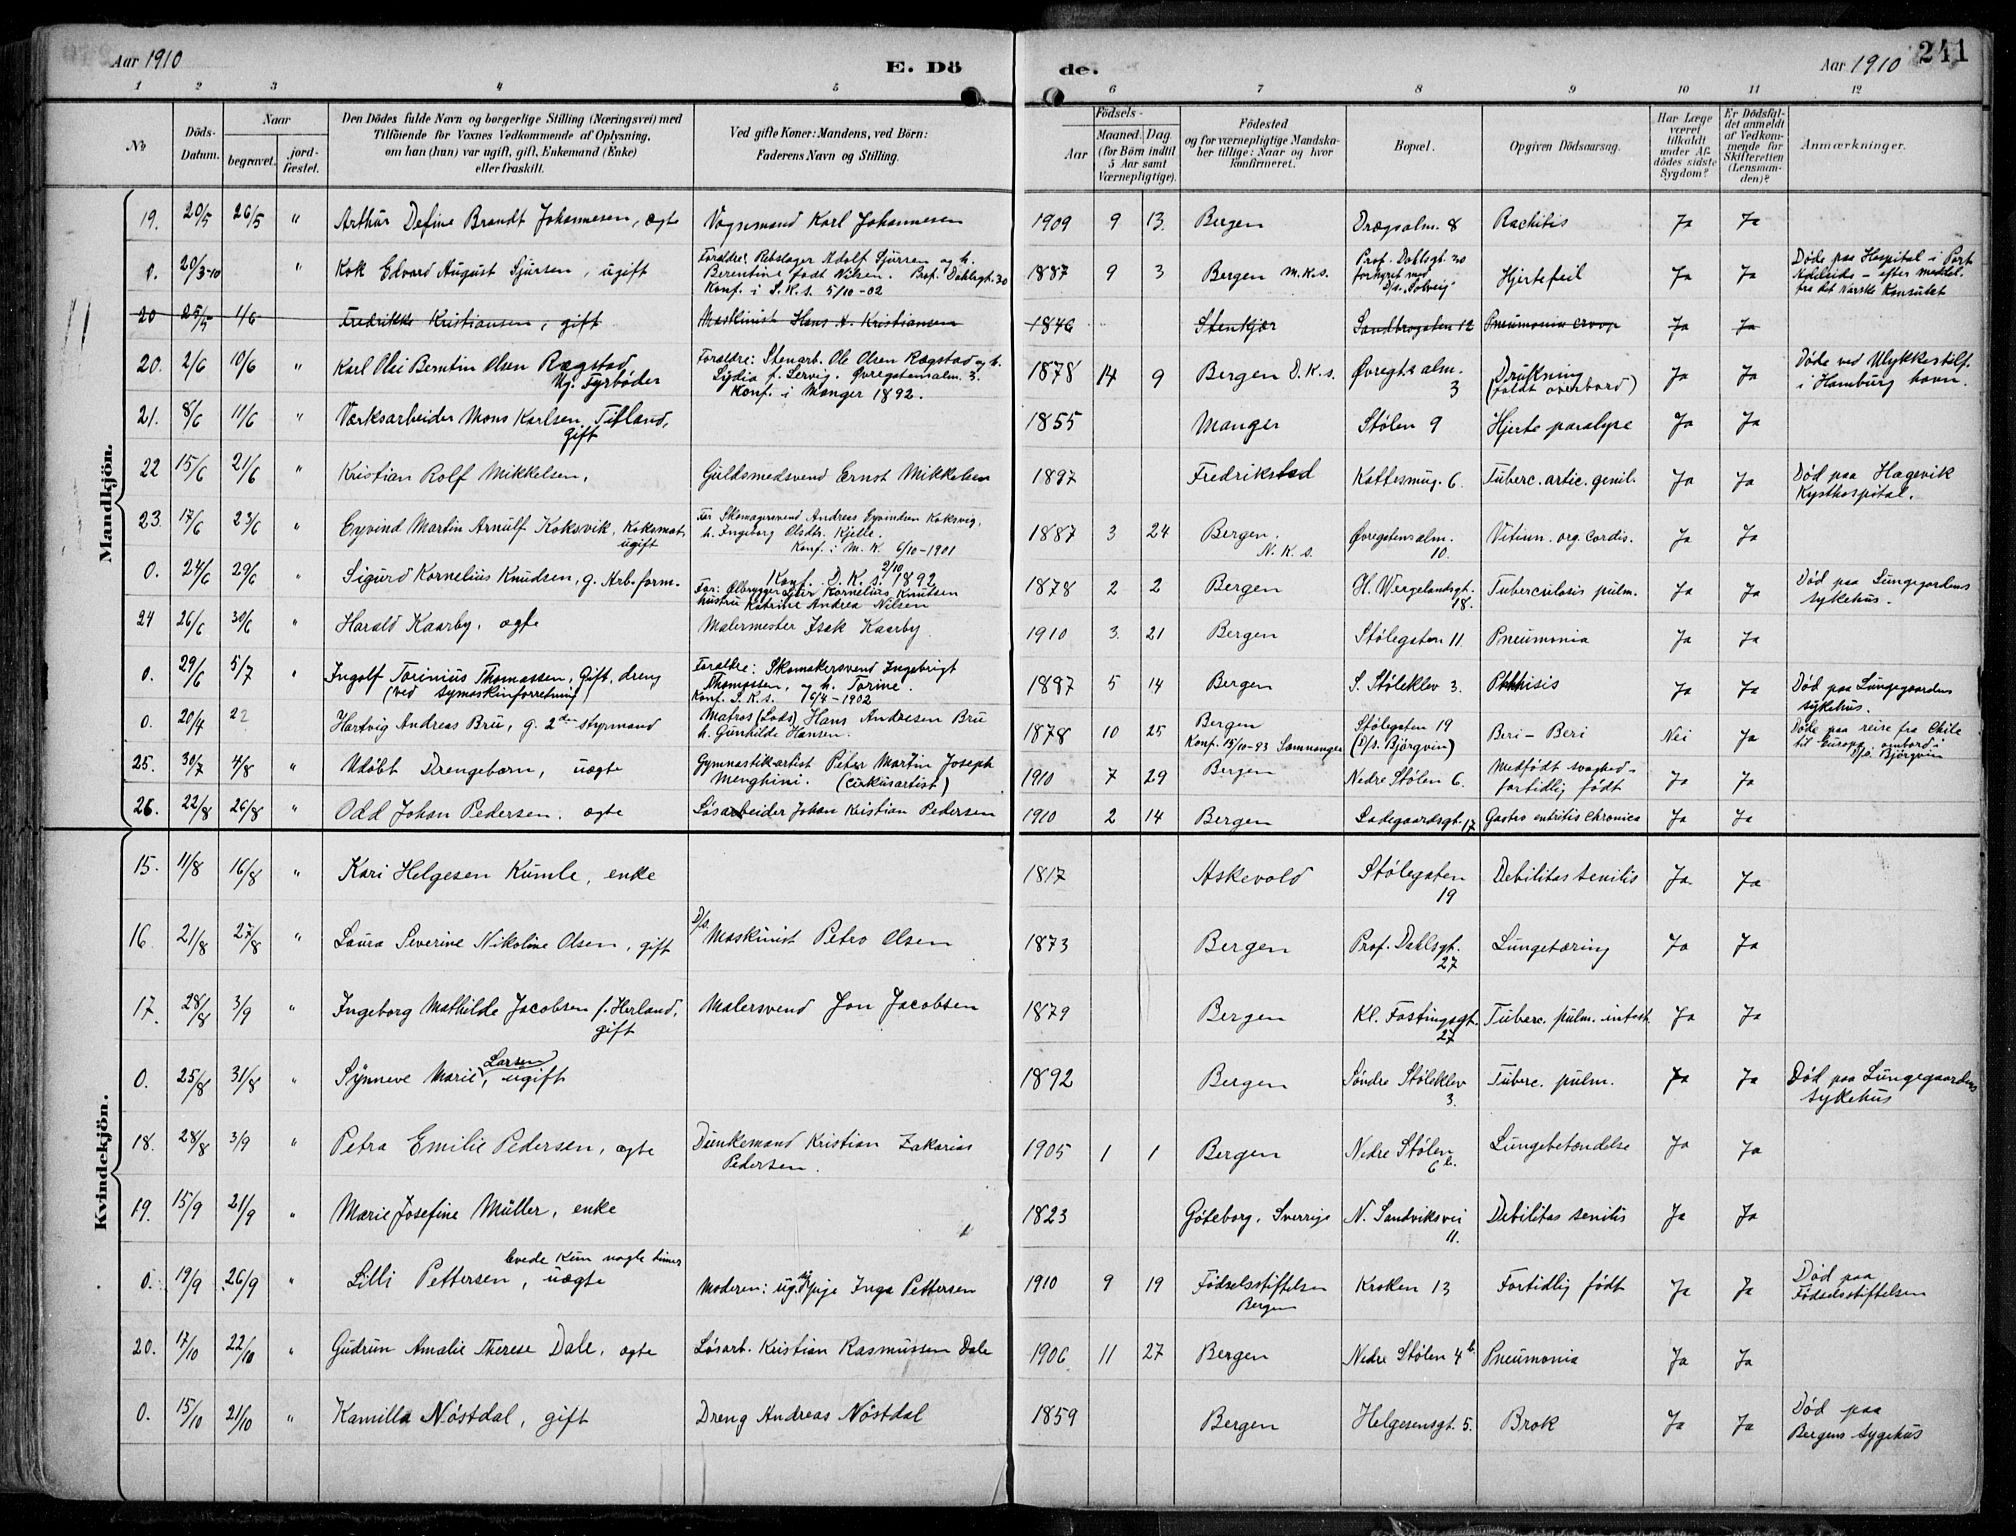 Aar 1910
E. Dö
de.
Aar 1910
241
1 2 3 4 5 6 7 8 9 10 11 12
No
Döds-Datum.
Naar
begravet.
jord-fæstet.
Den Dödes fulde Navn og borgerlige Stilling (Næringsvei) med
Tilföiende for Voxnes Vedkommende af Oplysning,
om han (hun) var ugift, gift, Enkemand (Enke)
eller fraskilt.
Ved gifte Koner: Mandens, ved Börn:
Faderens Navn og Stilling.
Födsels-
Aar
Maaned. Dag.
(for Börn indtil
5 Aar samt
Værnepligtige).
Födested
og for værnepligtige Mandska-
ber tillige: Naar og hvor
konfirmeret.
Bopæl.
Opgiven Dödsaarsag.
Har Læge
været
tilkaldt
under Af-
dödes sidste
Sygdom?
Er Dödsfal-
det anmeldt
af Vedkom-
mende for
Skifteretten
(Lensman-
den)?
Anmærkninger.
Mandkjön.
19. 20/5 26/5 " Arthur Define Brandt Johannesen, ægte Vognmand Karl Johannesen 1909 9 13. Bergen Drægsalm. 8 Rachitis Ja Ja
0. 20/3-10 " Kok Edvard August Sjursen, ugift Forældre: Rebslager Adolf Sjursen og h.
Berentine født Nilsen. Prof. Dahlsgt. 30
Konf. i S.K.s. 5/10-02 1887 9 3 Bergen M.K.s. Prof. Dahlsgt. 30
forhyret med
D/s. "Solveig" Hjertefeil Ja Ja Døde paa Hospital i Port
Adelaide - efter meddel.
fra det Norske Konsulat
20 25/5 1/6 Fredrikke Kristiansen, gift Maskinist Hans N. Kristiansen 1846 Stenkjær Sandbrogaten 12 Pneumonia croup Ja Ja
20. 2/6 10/6 " Karl Olai Berntin Olsen Rægstad
Ug. Fyrbøder Forældre: Stenarb. Ole Olsen Rægstad og h.
Lydia f. Servig. Øvregatensalm. 3.
Konf. i Manger 1892. 1878 14 9 Bergen D.K.s. Øvregt.s alm.
3 Drukning
(faldt overbord) Ja Ja Døde ved Ulykkestilf.
i Hamburg havn.
21. 8/6 11/6 " Værksarbeider Mons Karlsen Titland,
gift 1855 Manger Stølen 9 Hjerte paralyse Ja Ja
22 15/6 21/6 " Kristian Rolf Mikkelsen, Guldsmedsvend Ernst Mikkelsen 1897 Fredrikstad Kattesmug. 6. Tuberc. artic. genil. Ja Ja Død paa Hagevik
Kysthospital.
23. 17/6 23/6 " Eyvind Martin Arnulf Koksvik, Koksmat,
ugift For Skomagersvend Andreas Eyvindsen Koksvig,
h. Ingeborg Olsdtr. Kjelle.
Konf. i M.K. 6/10-1901 1887 3 24 Bergen.
N.K.s. Øvregatensalm.
10. Vitium. org. cordis. Ja Ja
0. 24/6 29/6 " Sigurd Kornelius Knudsen, g. Arb.form. Konf. D.K.s. 2/10 1892
For: Ølbryggeriarb. Kornelius Knutsen
hustru Katrine Andrea Nilsen 1878 2 2 Bergen H. Wergelandsgt.
18. Tuberculosis pulm. Ja Ja Død paa Lungegaardens
sykehus.
24 26/6 30/6 " Harald Kaarby, ægte Malermester Isak Kaarby. 1910 3. 21 Bergen Stølegaten 11 Pneumonia Ja Ja
0. 29/6 5/7 " Ingolf Torinius Thomassen, Gift, dreng
(ved symaskinforretning) Foræltre: Skomakersvend Ingebrigt
Thomassen, og h. Torine.
Konf. S.K.s. 6/4-1902 1887 5 14 Bergen S. Støleklev 3. Phthisis Ja Ja Død paa Lungegaardens
sykehus.
0. 20/4 22 Hartvig Andreas Bru, g. 2den styrmand Matros (Lods) Hans Andresen Bru
h. Gunhilde Hansen. 1878 10 25 Bergen
Konf. 15/10-93 Samnanger Stølegaten 19
(D/s. Björgvin) Beri-Beri Nei Ja Døde paa reise fra Chile
til Europa ombord i
D/s. Björgvin
25. 30/7 4/8 " Udöbt Drengebarn, uægte Gymnastikartist Peter Martin Joseph
Menghini. (Cirkusartist) 1910 7 29 Bergen Nedre Stølen 6. Medfödt svaghed-
fortidlig födt Ja Ja
26. 22/8 26/8 " Odd Johan Pedersen. ægte Løsarbeider Johan Kristian Pedersen 1910 2 14 Bergen Ladegaardsgt. 17 Gastro entritis chronica Ja Ja
Kvindekjön.
15. 11/8 16/8 " Kari Helgesen Kumle, enke 1817 Askevold Stølegaten
19 Debilitas senilis Ja Ja
16. 21/8 27/8 " Laura Severine Nikoline Olsen, gift D/s. Maskinist Petro Olsen 1873 Bergen Prof. Dahlsgt.
27 Lungetæring Ja Ja
17. 28/8 3/9 " Ingeborg Mathilde Jacobsen f. Herland,
gift Malersvend Jon Jacobsen 1879 Bergen Kl. Fostingsgt.
27 Tuberc. pulm. intest. Ja Ja
0. 25/8 31/8 " Synneve Marie Larsen, ugift 1892 Bergen Søndre Støleklev
3. Tuberc. pulm. Ja Ja Død paa Lungegaardens
sykehus
18. 28/8 3/9 " Petra Emilie Pedersen, ægte Dunkemand Kristian Zakarias
Pedersen. 1905 1 1 Bergen Nedre Stølen
6 b. Lungebetændelse Ja Ja
19. 15/9 21/9 " Marie Josefine Müller, enke 1823 Göteborg, Sverrige N. Sandviksvei
11. Debilitas senilis Ja Ja
0. 19/9 26/9 " Lilli Pettersen, uægte
levede kun nogle timer Moderen: ug. Inga Pettersen 1910 9 19 Födselsstiftelsen
Bergen Kroken 13 Fortidlig født Ja Ja Død paa
Födselsstiftelsen
20. 17/10 22/10 " Gudrun Amalie Therese Dale, ægte Løsarb. Kristian Rasmussen Dale 1906 11 27 Bergen Nedre Stølen 4 b. Pneumonia Ja Ja
0. 15/10 21/10 " Kamilla Nöstdal, gift Dreng Andreas Nöstdal 1859 Bergen Helgesensgt. 5. Brok Ja Ja Død paa
Bergens sygehus